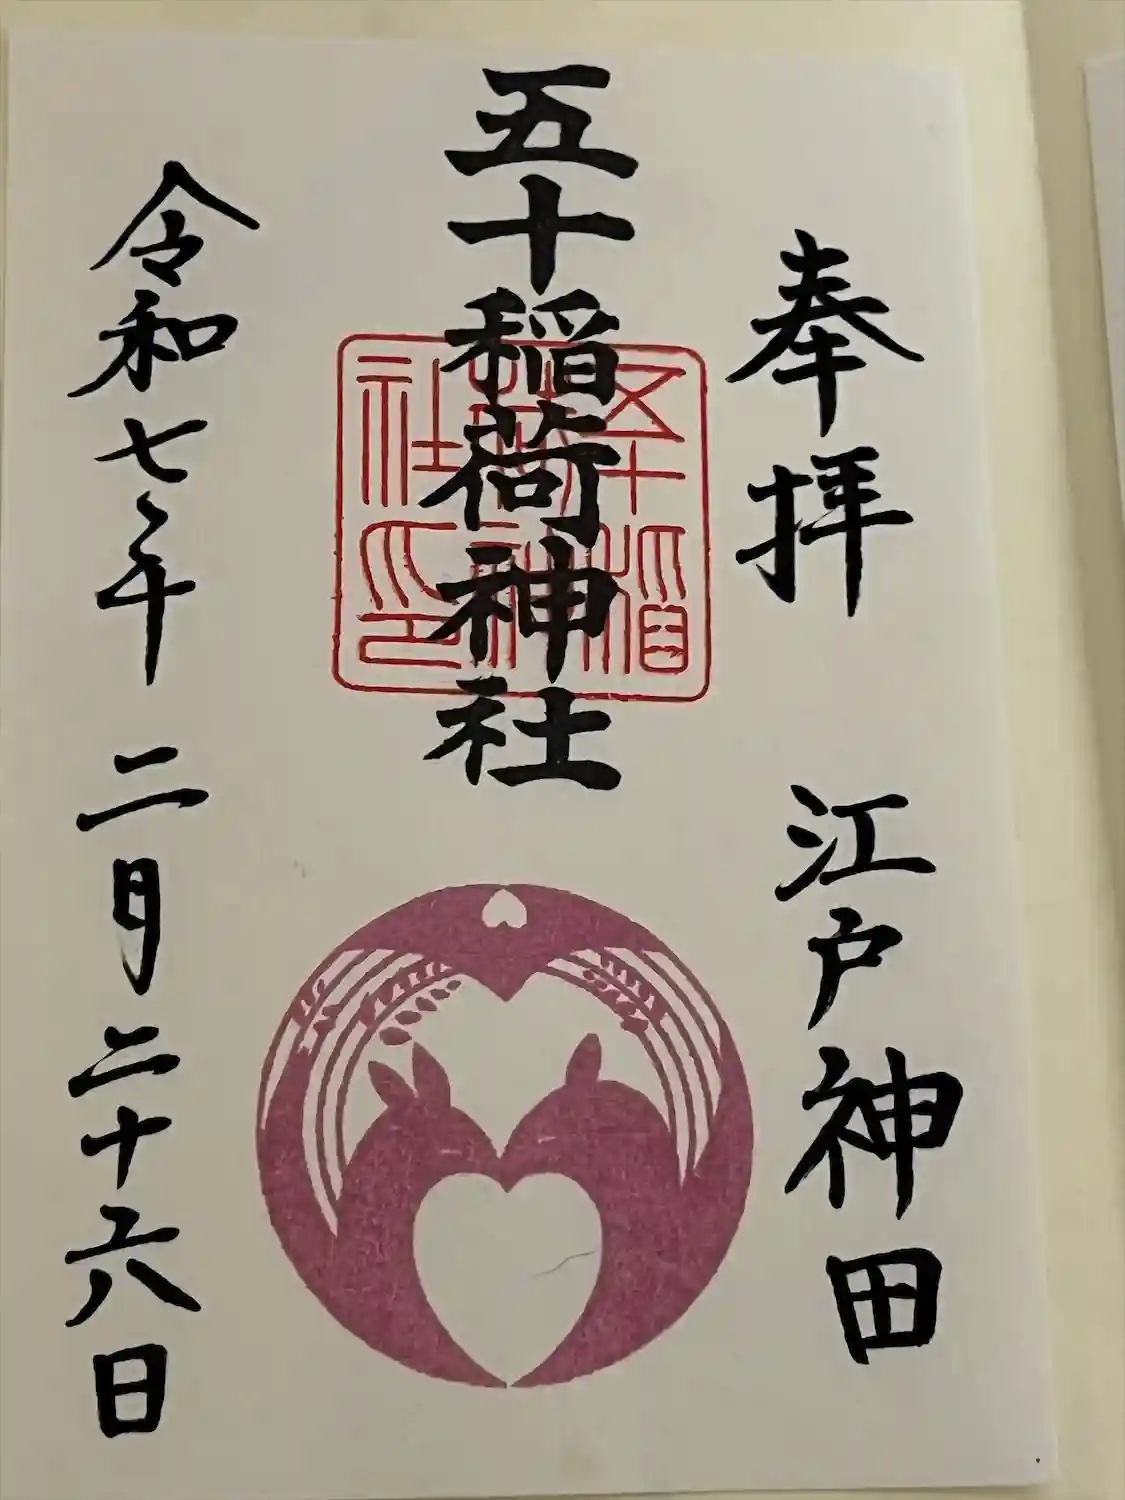 奉拝 江戸神田
五十稲荷神社
五十稲荷神社印
令和七年 二月二十六日